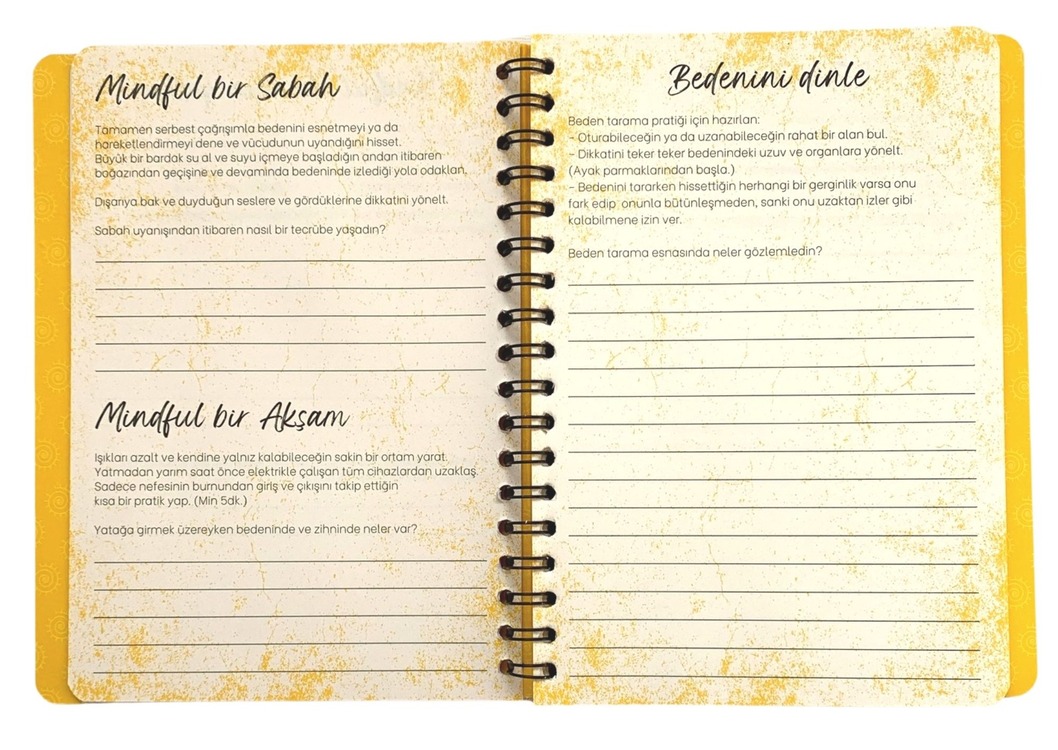 Mindful bir Sabah
Tamamen serbest çağrışımla bedenini esnetmeyi ya da
hareketlendirmeyi dene ve vücudunun uyandığını hisset.
Büyük bir bardak su al ve suyu içmeye başladığın andan itibaren
boğazından geçişine ve devamında bedeninde izlediği yola odaklan.
Dışarıya bak ve duyduğun seslere ve gördüklerine dikkatini yönelt.
Sabah uyanışından itibaren nasıl bir tecrübe yaşadın?
Mindful bir Akşam
Işıkları azalt ve kendine yalnız kalabileceğin sakin bir ortam yarat.
Yatmadan yarım saat önce elektrikle çalışan tüm cihazlardan uzaklaş.
Sadece nefesinin burnundan giriş ve çıkışını takip ettiğin
kısa bir pratik yap. (Min 5dk.)
Yatağa girmek üzereyken bedeninde ve zihninde neler var?
Bedenini dinle
Beden tarama pratiği için hazırlan:
- Oturabileceğin ya da uzanabileceğin rahat bir alan bul.
- Dikkatini teker teker bedenindeki uzuv ve organlara yönelt.
(Ayak parmaklarından başla.)
- Bedenini tararken hissettiğin herhangi bir gerginlik varsa onu
fark edip onunla bütünleşmeden, sanki onu uzaktan izler gibi
kalabilmene izin ver.
Beden tarama esnasında neler gözlemledin?